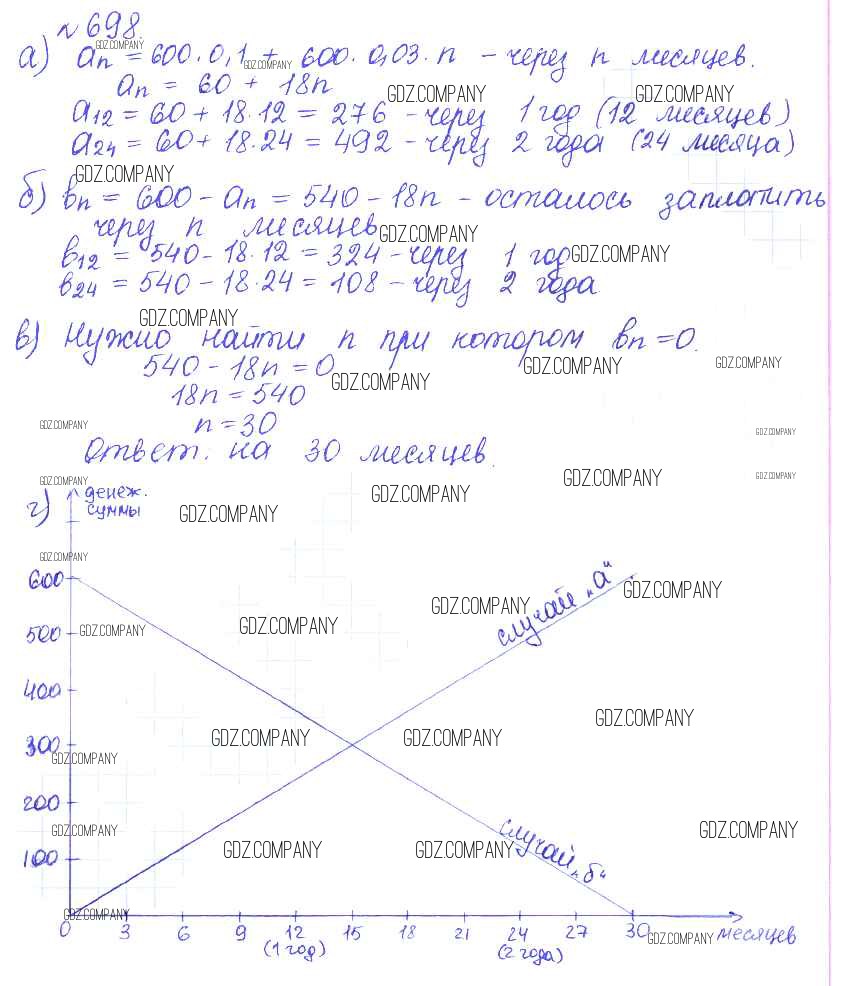 № 698.
GDZ.COMPANY
а) aₙ = 600·0,1 + 600·0,03·n – через n месяцев.
GDZ.COMPANY
aₙ = 60 + 18n
GDZ.COMPANY GDZ.COMPANY
a₁₂ = 60 + 18·12 = 276 – через 1 год (12 месяцев)
a₂₄ = 60 + 18·24 = 492 – через 2 года (24 месяца)
GDZ.COMPANY
б) bₙ = 600 – aₙ = 540 – 18n – осталось заплатить
через n месяцев
GDZ.COMPANY
b₁₂ = 540 – 18·12 = 324 – через 1 год
GDZ.COMPANY
b₂₄ = 540 – 18·24 = 108 – через 2 года
GDZ.COMPANY
в) Нужно найти n при котором bₙ = 0.
540 – 18n = 0
GDZ.COMPANY GDZ.COMPANY
GDZ.COMPANY
18n = 540
n = 30
GDZ.COMPANY GDZ.COMPANY
Ответ: на 30 месяцев.
GDZ.COMPANY GDZ.COMPANY GDZ.COMPANY
г) денеж.
суммы
GDZ.COMPANY GDZ.COMPANY
GDZ.COMPANY
600
случай „а“
GDZ.COMPANY GDZ.COMPANY
500
GDZ.COMPANY GDZ.COMPANY
400
GDZ.COMPANY
300
GDZ.COMPANY GDZ.COMPANY
GDZ.COMPANY
200
GDZ.COMPANY GDZ.COMPANY
случай „б“
100
GDZ.COMPANY GDZ.COMPANY
GDZ.COMPANY
0 3 6 9 12 15 18 21 24 27 30 месяцев
GDZ.COMPANY
(1 год) (2 года)